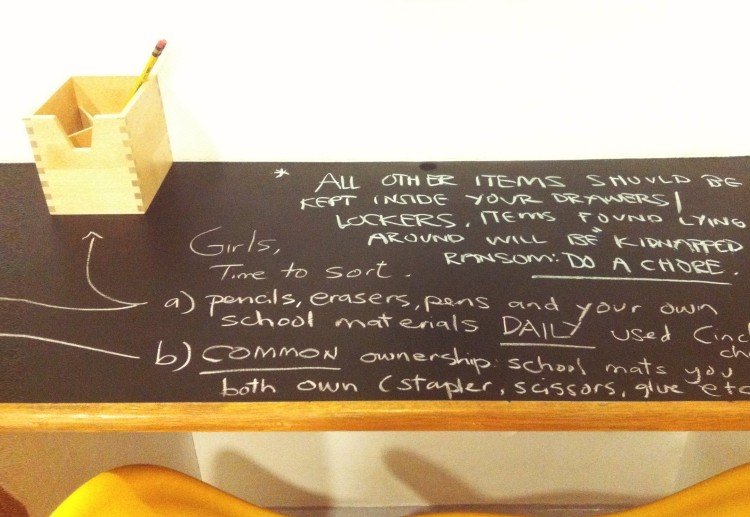 * ALL OTHER ITEMS SHOULD BE
KEPT INSIDE YOUR DRAWERS/
LOCKERS. ITEMS FOUND LYING
AROUND WILL BE "KIDNAPPED
RANSOM: DO A CHORE.
Girls,
Time to sort.
a) pencils, erasers, pens and your own
school materials DAILY used (inc
ch
b) COMMON ownership: school mats you
both own (stapler, scissors, glue etc